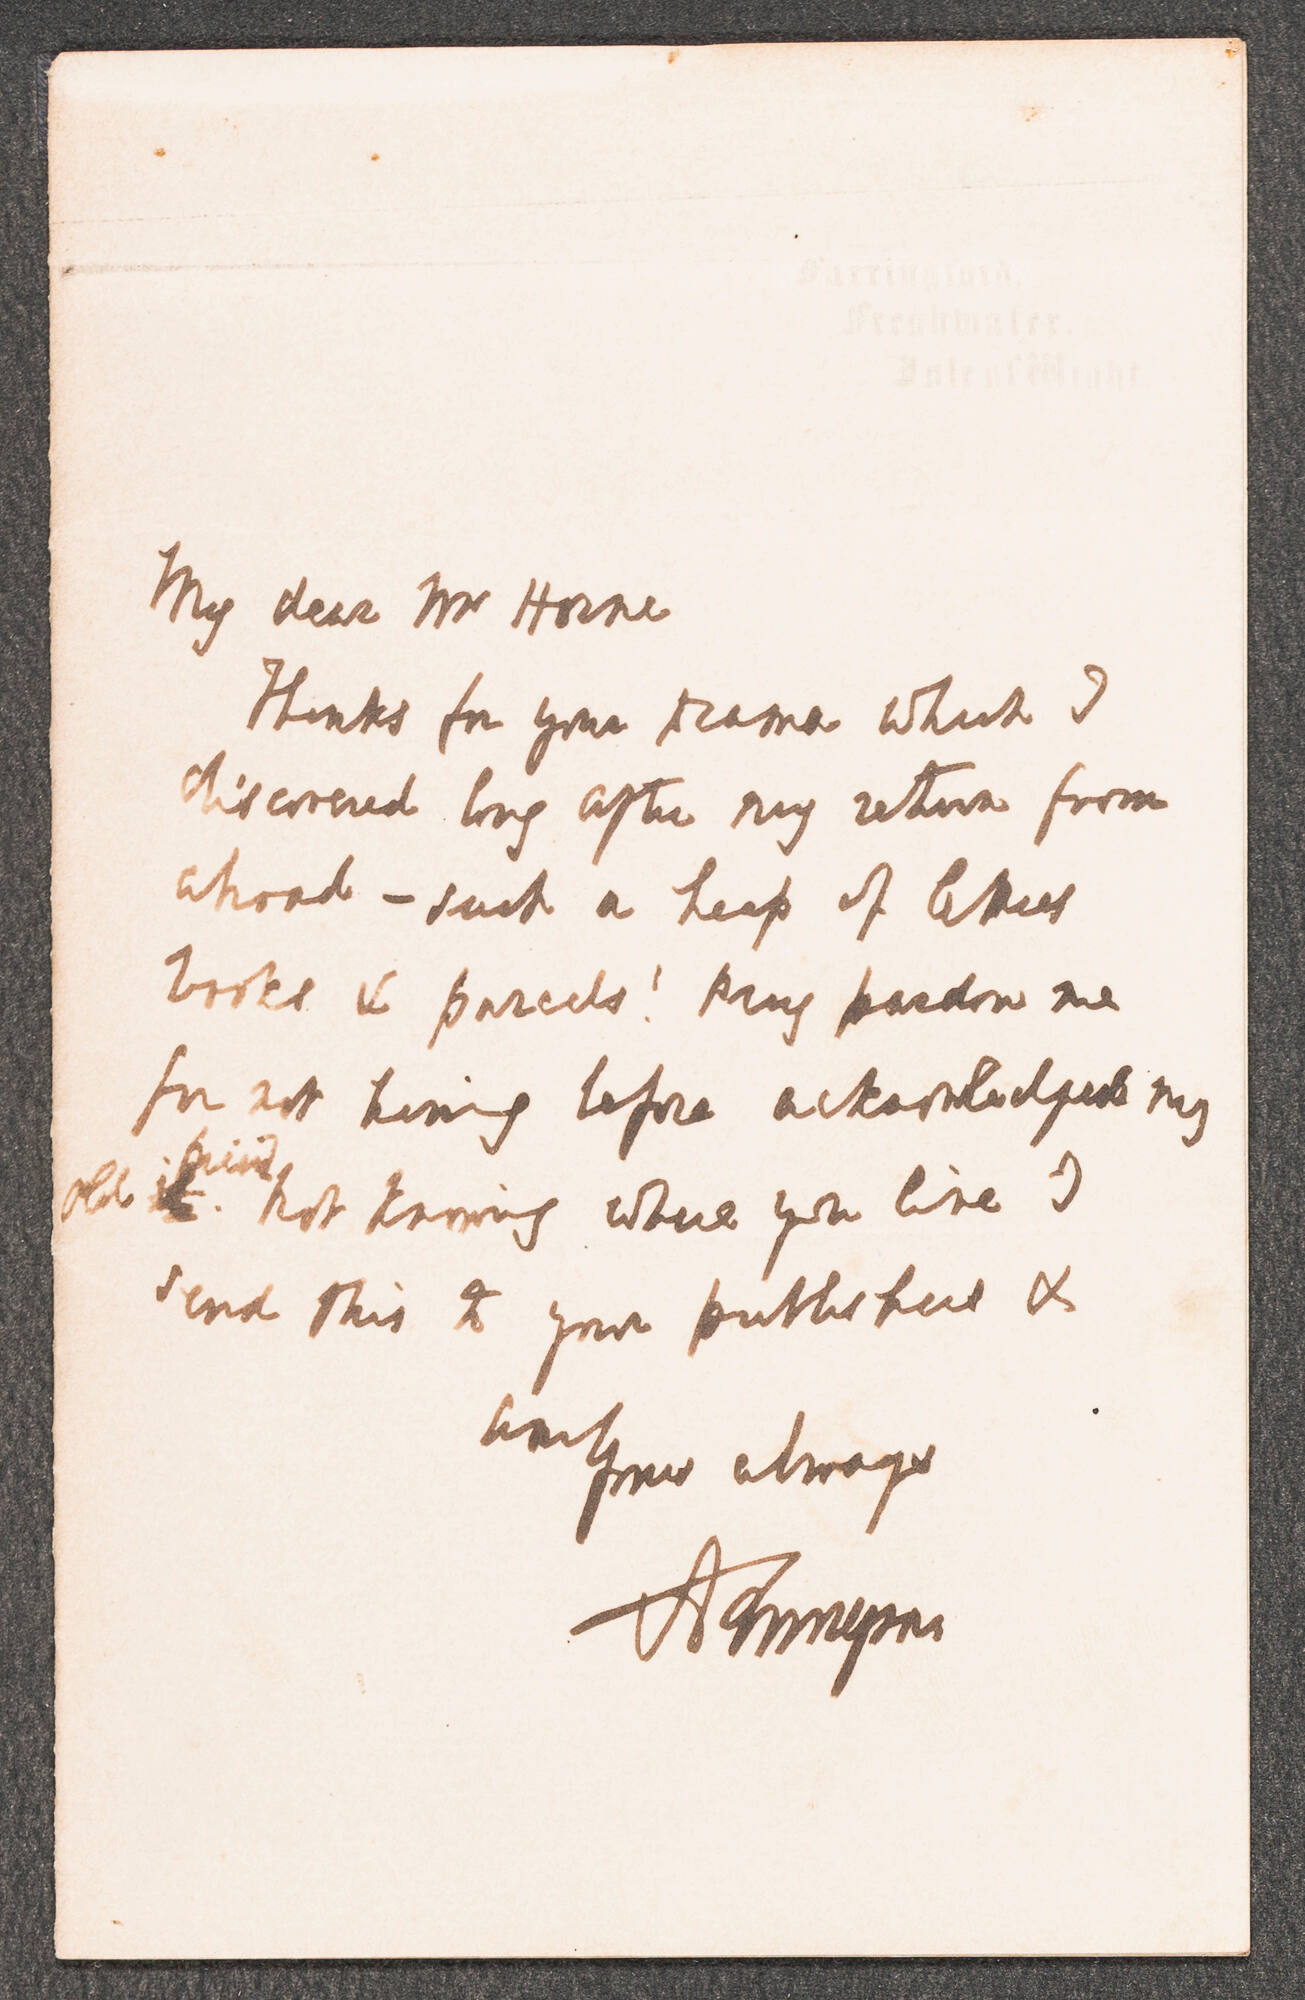 Farringford,
Freshwater.
Isle of Wight
My dear Mr Horne
Thanks for your drama which I
discovered long after my return from
abroad – such a heap of letters
books & parcels! Pray pardon me
for not having before acknowledged my
old it friend. Not knowing where you live I
send this to your publishers &
am
Yours always
A Tennyson